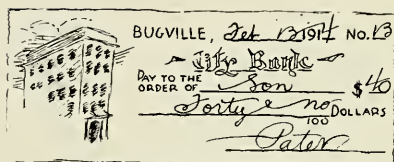 BUGVILLE, Feb 13 1914 NO. 13
City Bank
PAY TO THE
ORDER OF Son $40
Forty & no/100 DOLLARS
Pater